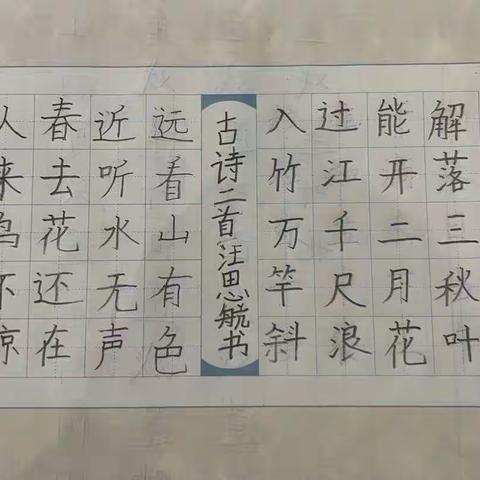 解落三秋叶
能开二月花
过江千尺浪
入竹万竿斜
古诗二首汪思毓书
远看山有色
近听水无声
春去花还在
人来鸟不惊